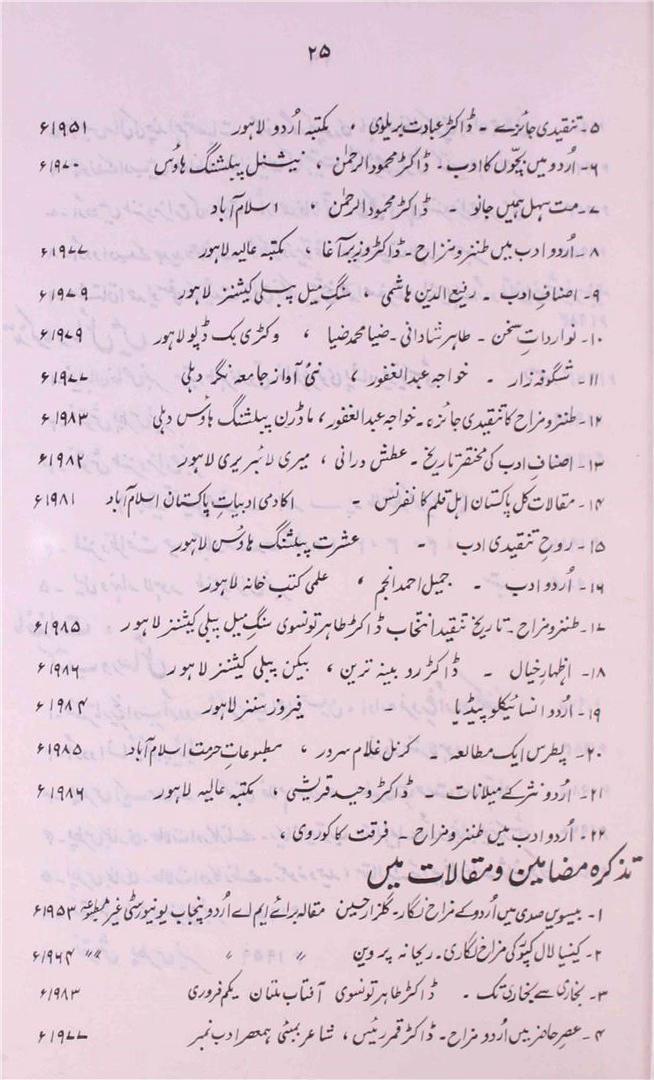 ۲۵
۵۔ تنقیدی جائزے ۔ ڈاکٹر عبادت بریلوی ، مکتبہ اُردو لاہور ۱۹۵۱ء
۶۔ اُردو میں بچّوں کا ادب ۔ ڈاکٹر محمود الرحمٰن ، نیشنل پبلشنگ ہاؤس ۱۹۷۰ء
۷۔ مت سہل ہمیں جانو ۔ ڈاکٹر محمود الرحمٰن ، اسلام آباد
۸۔ اُردو ادب میں طنز و مزاح ۔ ڈاکٹر وزیر آغا ، مکتبہ عالیہ لاہور ۱۹۷۷ء
۹۔ اصنافِ ادب ۔ رفیع الدین ہاشمی ، سنگِ میل پبلی کیشنز لاہور ۱۹۷۹ء
۱۰۔ نوارداتِ سخن ۔ طاہر شادانی ۔ ضیا محمد ضیا ، وکٹری بک ڈپو لاہور ۱۹۷۹ء
۱۱۔ شگوفہ زار ۔ خواجہ عبدالغفور ، نئی آواز جامعہ نگر دہلی ۱۹۷۷ء
۱۲۔ طنز و مزاح کا تنقیدی جائزہ ۔ خواجہ عبدالغفور ، ماڈرن پبلشنگ ہاؤس دہلی ۱۹۸۳ء
۱۳۔ اصنافِ ادب کی مختصر تاریخ ۔ عطش درانی ، میری لائبریری لاہور ۱۹۸۲ء
۱۴۔ مقالات کل پاکستان اہلِ قلم کانفرنس ۔ اکادمی ادبیاتِ پاکستان اسلام آباد ۱۹۸۱ء
۱۵۔ روحِ تنقیدی ادب ۔ عشرت پبلشنگ ہاؤس لاہور
۱۶۔ اُردو ادب ۔ جمیل احمد انجم ، علمی کتب خانہ لاہور
۱۷۔ طنز و مزاح ۔ تاریخ تنقید انتخاب ڈاکٹر طاہر تونسوی سنگِ میل پبلی کیشنز لاہور ۱۹۸۵ء
۱۸۔ اظہارِ خیال ۔ ڈاکٹر روبینہ ترین ، بیکن پبلی کیشنز لاہور ۱۹۸۶ء
۱۹۔ اُردو انسائیکلوپیڈیا ۔ فیروز سنز لاہور ۱۹۸۴ء
۲۰۔ پطرس ایک مطالعہ ۔ کرنل غلام سرور ، مطبوعاتِ حرمت اسلام آباد ۱۹۸۵ء
۲۱۔ اُردو نثر کے میلانات ۔ ڈاکٹر وحید قریشی ، مکتبہ عالیہ لاہور ۱۹۸۶ء
۲۲۔ اُردو ادب میں طنز و مزاح ۔ فرقت کاکوروی ،
تذکرہ مضامین و مقالات میں
۱۔ بیسویں صدی میں اُردو کے مزاح نگار ۔ گلزار حسین مقالہ برائے ایم اے اُردو پنجاب یونیورسٹی غیر مطبوعہ ۱۹۵۳ء
۲۔ کنہیا لال کپور کی مزاح نگاری ۔ ریحانہ پروین ״ ״ ״״ ۱۹۶۴ء
۳۔ بخاری سے بخاری تک ۔ ڈاکٹر طاہر تونسوی آفتاب ملتان یکم فروری ۱۹۸۳ء
۴۔ عصرِ حاضر میں اُردو مزاح ۔ ڈاکٹر قمر رئیس ، شاعر بمبئی ہمعصر ادب نمبر ۱۹۷۷ء